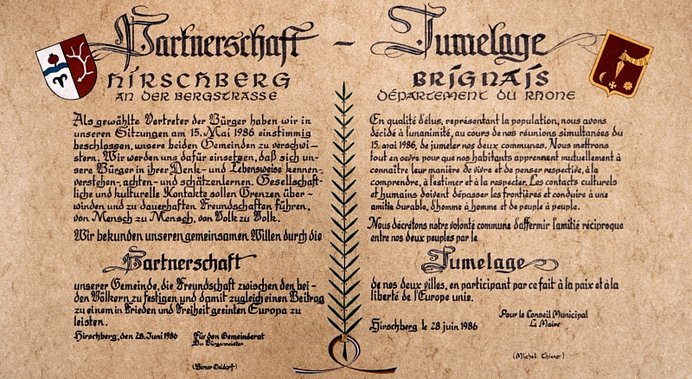 Partnerschaft – Jumelage
HIRSCHBERG
AN DER BERGSTRASSE
Als gewählte Vertreter der Bürger haben wir in
unseren Sitzungen am 15. Mai 1986 einstimmig
beschlossen, unsere beiden Gemeinden zu verschwi-
stern. Wir werden uns dafür einsetzen, daß sich un-
sere Bürger in ihrer Denk- und Lebensweise kennen-
verstehen- achten- und schätzenlernen. Gesellschaft-
liche und kulturelle Kontakte sollen Grenzen über-
winden und zu dauerhaften Freundschaften führen,
von Mensch zu Mensch, von Volk zu Volk.
Wir bekunden unseren gemeinsamen Willen durch die
Partnerschaft
unserer Gemeinde, die Freundschaft zwischen den bei-
den Völkern zu festigen und damit zugleich einen Beitrag
zu einem in Frieden und Freiheit geeinten Europa zu
leisten.
Hirschberg, den 28. Juni 1986
Für den Gemeinderat
Der Bürgermeister
BRIGNAIS
DÉPARTEMENT DU RHONE
En qualité d'élus, représentant la population, nous avons
décidé à l'unanimité, au cours de nos réunions simultanées du
15. mai 1986, de jumeler nos deux communes. Nous mettrons
tout en oeuvre pour que nos habitants apprennent mutuellement à
connaître leur manière de vivre et de penser respective, à la
comprendre, à l'estimer et à la respecter. Les contacts culturels
et humains doivent dépasser les frontières et conduire à une
amitié durable, d'homme à homme et de peuple à peuple.
Nous décrétons notre volonté commune d'affermir l'amitié réciproque
entre nos deux peuples par le
Jumelage
de nos deux villes, en participant par ce fait à la paix et à la
liberté de l'Europe unie.
Hirschberg le 28 juin 1986
Pour le Conseil Municipal
Le Maire
(Michel Thiers)